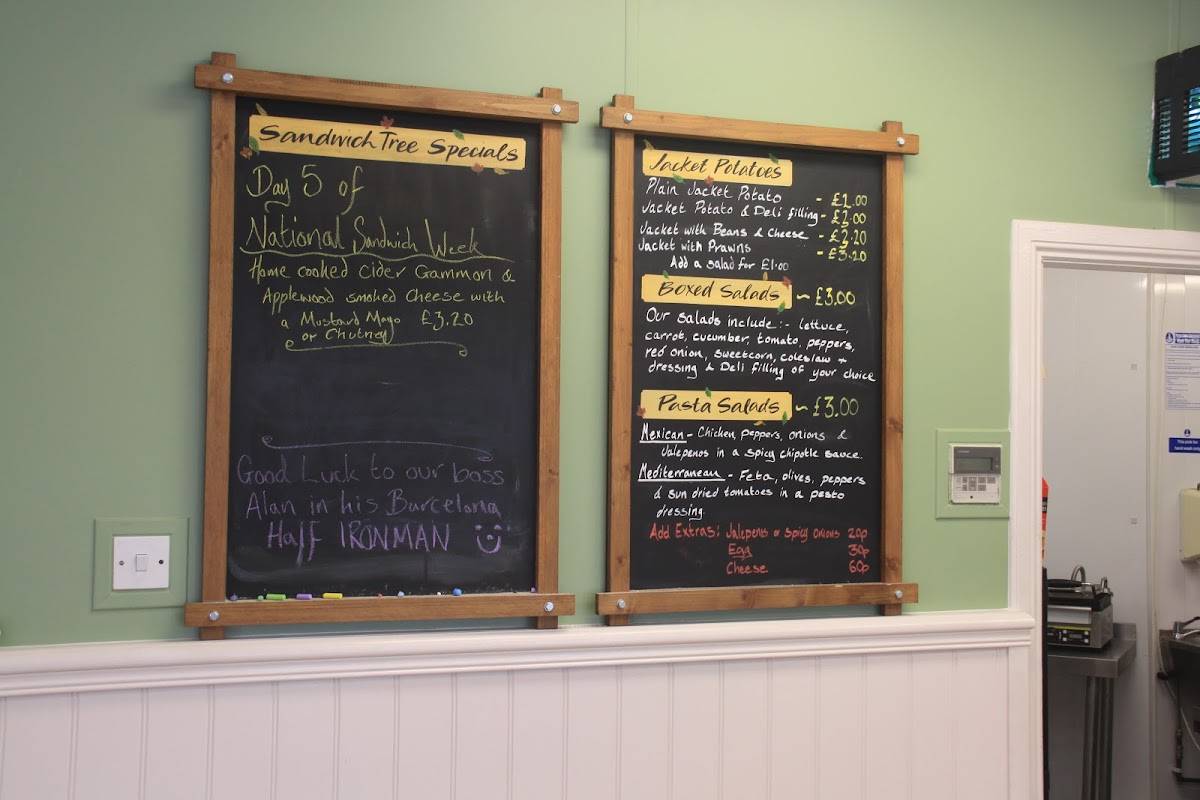 Sandwich Tree Specials
Day 5 of
National Sandwich Week
Home cooked Cider Gammon &
Applewood smoked Cheese with
a Mustard Mayo £3.20
or Chutney
Good Luck to our boss
Alan in his Barcelona
Half IRONMAN
Jacket Potatoes
Plain Jacket Potato - £1.00
Jacket Potato & Deli filling - £2.00
Jacket with Beans & Cheese - £2.20
Jacket with Prawns - £3.20
Add a salad for £1.00
Boxed Salads ~ £3.00
Our salads include:- lettuce,
carrot, cucumber, tomato, peppers,
red onion, sweetcorn, coleslaw +
dressing & Deli filling of your choice
Pasta Salads ~ £3.00
Mexican - Chicken, peppers, onions &
Jalepenos in a spicy chipotle sauce.
Mediterranean - Feta, olives, peppers
& sun dried tomatoes in a pesto
dressing.
Add Extras: Jalepenos or spicy onions 20p
Egg 30p
Cheese 60p